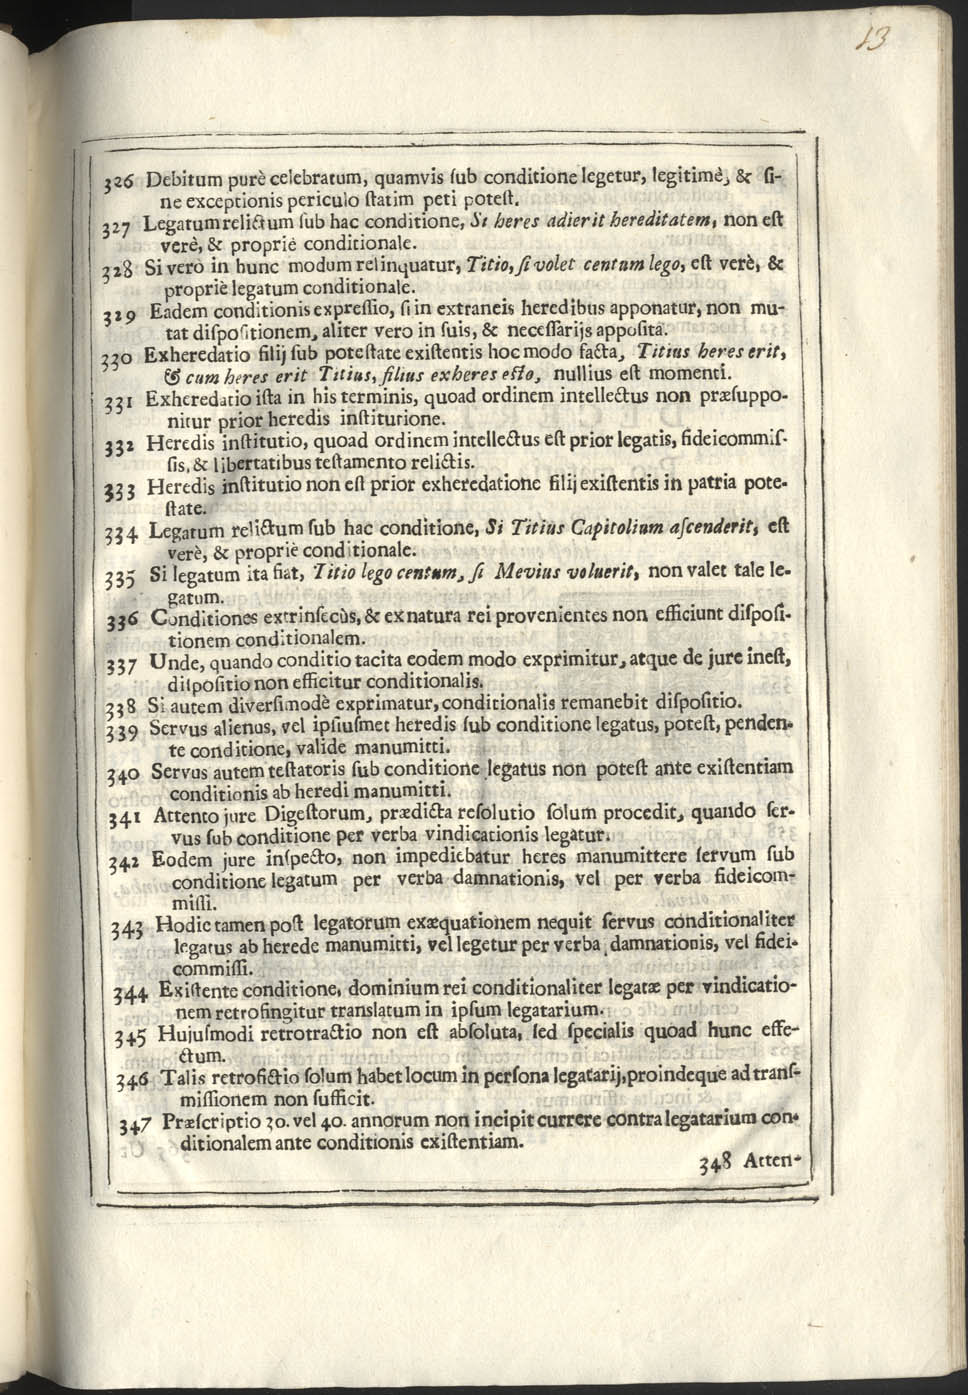 13
326 Debitum purè celebratum, quamvis ſub conditione legetur, legitimè, & ſi-
ne exceptionis periculo ſtatim peti poteſt.
327 Legatum relictum ſub hac conditione, Si heres adierit hereditatem, non eſt
verè, & propriè conditionale.
328 Si verò in hunc modum relinquatur, Titio, ſi volet centum lego, eſt verè, &
propriè legatum conditionale.
329 Eadem conditionis expreſſio, ſi in extraneis heredibus apponatur, non mu-
tat diſpoſitionem, aliter vero in ſuis, & neceſſarijs appoſita.
330 Exheredatio filij ſub poteſtate exiſtentis hoc modo facta, Titius heres erit,
& cum heres erit Titius, filius exheres eſto, nullius eſt momenti.
331 Exheredatio iſta in his terminis, quoad ordinem intellectus non præſuppo-
nitur prior heredis inſtitutione.
332 Heredis inſtitutio, quoad ordinem intellectus eſt prior legatis, fideicommiſ-
ſis, & libertatibus teſtamento relictis.
333 Heredis inſtitutio non eſt prior exheredatione filij exiſtentis in patria pote-
ſtate.
334 Legatum relictum ſub hac conditione, Si Titius Capitolium aſcenderit, eſt
verè, & propriè conditionale.
335 Si legatum ita fiat, Titio lego centum, ſi Mevius voluerit, non valet tale le-
gatum.
336 Conditiones extrinſecùs, & ex natura rei provenientes non efficiunt diſpoſi-
tionem conditionalem.
337 Unde, quando conditio tacita eodem modo exprimitur, atque de jure ineſt,
diſpoſitio non efficitur conditionalis.
338 Si autem diverſimodè exprimatur, conditionalis remanebit diſpoſitio.
339 Servus alienus, vel ipſiuſmet heredis ſub conditione legatus, poteſt, penden-
te conditione, valide manumitti.
340 Servus autem teſtatoris ſub conditione legatus non poteſt ante exiſtentiam
conditionis ab heredi manumitti.
341 Attento jure Digeſtorum, prædicta reſolutio ſolum procedit, quando ſer-
vus ſub conditione per verba vindicationis legatur.
342 Eodem jure inſpecto, non impediebatur heres manumittere ſervum ſub
conditione legatum per verba damnationis, vel per verba fideicom-
miſſi.
343 Hodie tamen poſt legatorum exæquationem nequit ſervus conditionaliter
legatus ab herede manumitti, vel legetur per verba damnationis, vel fidei-
commiſſi.
344 Exiſtente conditione, dominium rei conditionaliter legatæ per vindicatio-
nem retrofingitur translatum in ipſum legatarium.
345 Hujuſmodi retrotractio non eſt abſoluta, ſed ſpecialis quoad hunc effe-
ctum.
346 Talis retrofictio ſolum habet locum in perſona legatarij, proindeque ad tranſ-
miſſionem non ſufficit.
347 Præſcriptio 30. vel 40. annorum non incipit currere contra legatarium con-
ditionalem ante conditionis exiſtentiam.
348 Atten-